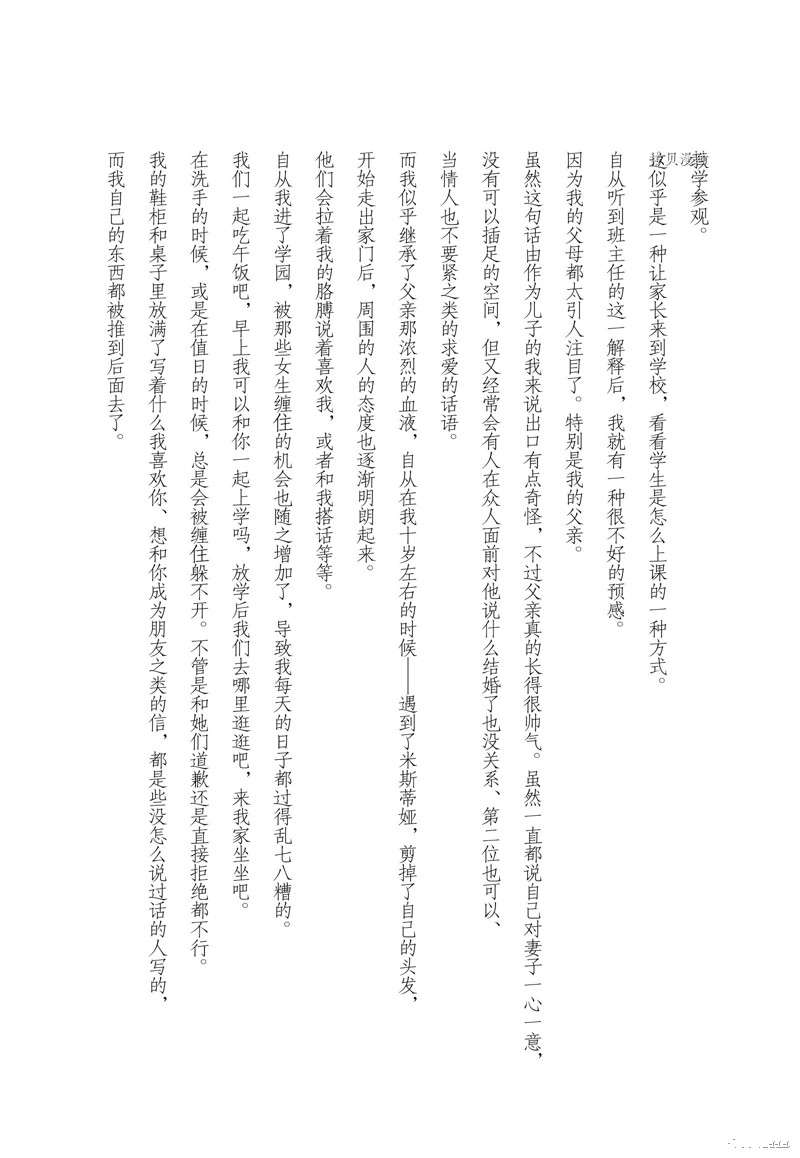 教学参观。
这似乎是一种让家长来到学校，看看学生是怎么上课的一种方式。
自从听到班主任的这一解释后，我就有一种很不好的预感。
因为我的父母都太引人注目了。特别是我的父亲。
虽然这句话由作为儿子的我来说出口有点奇怪，不过父亲真的长得很帅气。虽然一直都说自己对妻子一心一意，
没有可以插足的空间，但又经常会有人在众人面前对他说什么结婚了也没关系、第二位也可以、
当情人也不要紧之类的求爱的话语。
而我似乎继承了父亲那浓烈的血液，自从在我十岁左右的时候——遇到了米斯蒂娅，剪掉了自己的头发，
开始走出家门后，周围的人的态度也逐渐明朗起来。
他们会拉着我的胳膊说着喜欢我，或者和我搭话等等。
自从我进了学园，被那些女生缠住的机会也随之增加了，导致我每天的日子都过得乱七八糟的。
我们一起吃午饭吧，早上我可以和你一起上学吗，放学后我们去哪里逛逛吧，来我家坐坐吧。
在洗手的时候，或是在值日的时候，总是会被缠住躲不开。不管是和她们道歉还是直接拒绝都不行。
我的鞋柜和桌子里放满了写着什么我喜欢你、想和你成为朋友之类的信，都是些没怎么说过话的人写的，
而我自己的东西都被推到后面去了。